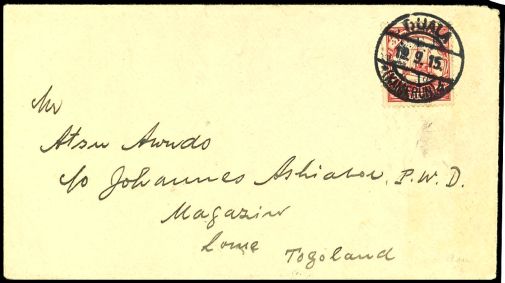 DUALA
19.9.15.
(KAMERUN)
Mr
Atsu Awudo
c/o Johannes Ashiabor. P.W.D.
Magazin
Lome Togoland